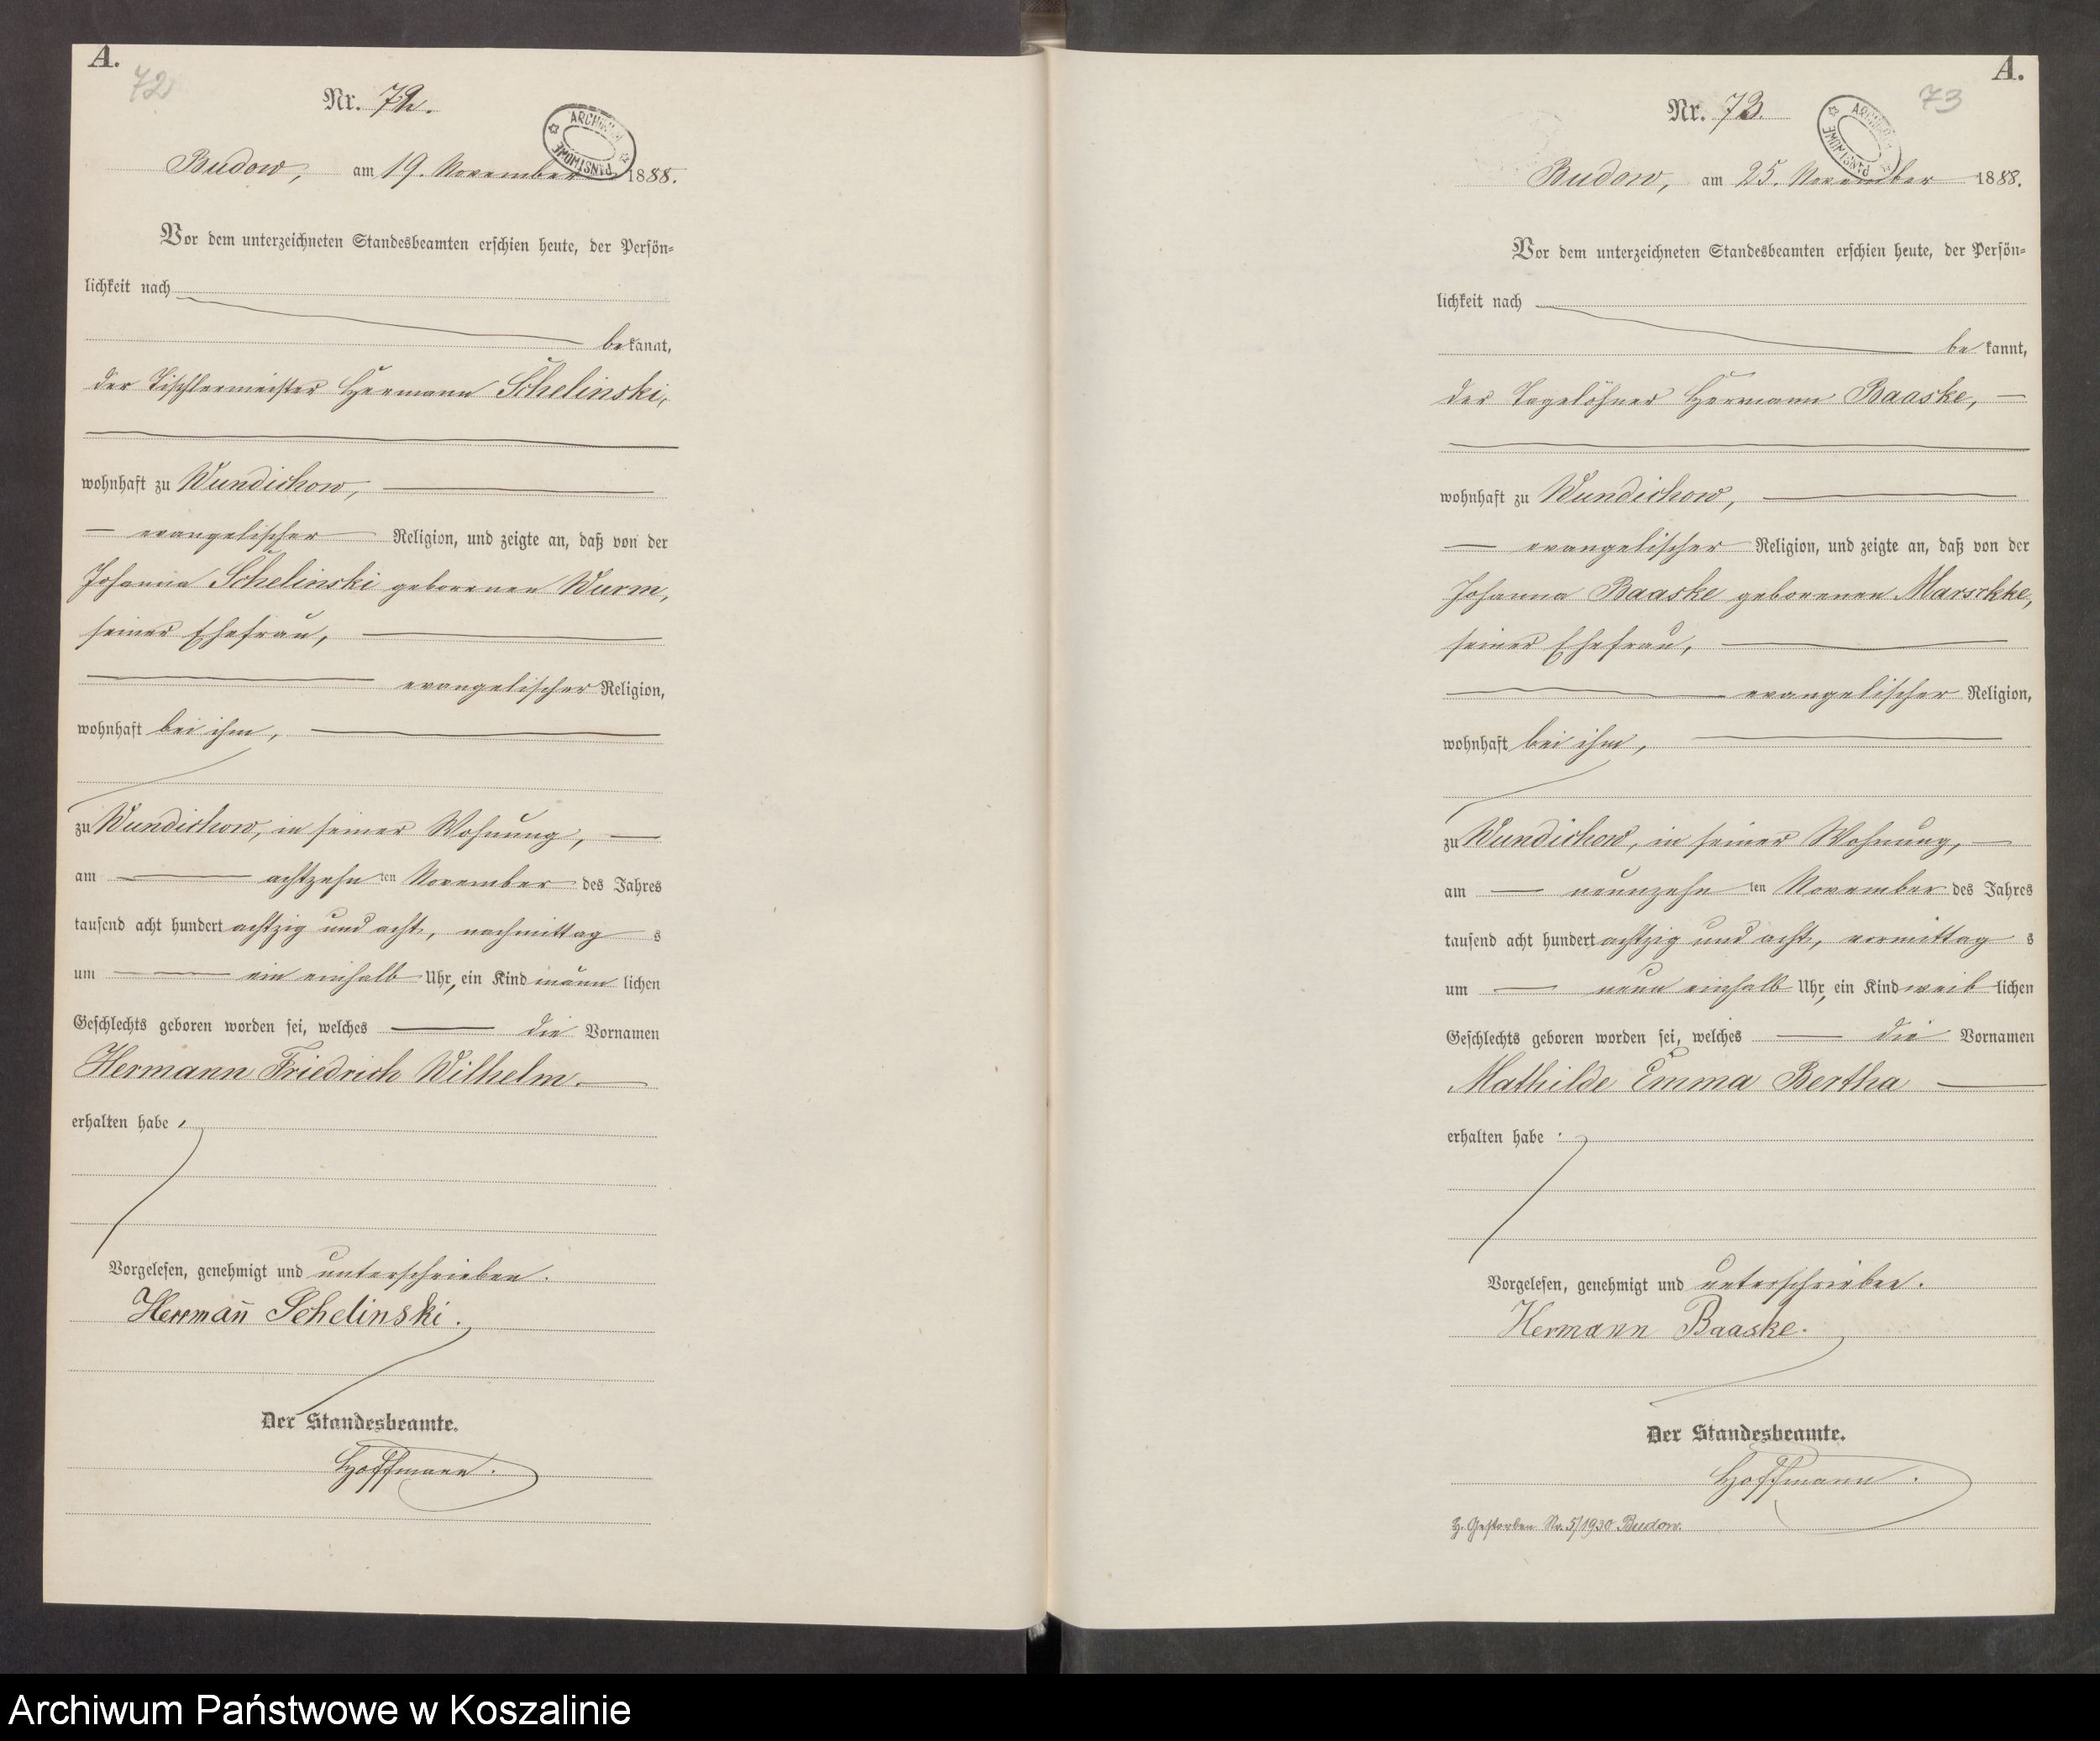 A.
72
Nr. 72.
ARCHIWUM PAŃSTWOWE
Budow, am 19. November 1888.
Vor dem unterzeichneten Standesbeamten erschien heute, der Persön-
lichkeit nach
bekannt,
der Tischlermeister Hermann Schelinski,
wohnhaft zu Wundichow,
evangelischer Religion, und zeigte an, daß von der
Johanna Schelinski geborenen Wurm,
seiner Ehefrau,
evangelischer Religion,
wohnhaft bei ihm,
zu Wundichow, in seiner Wohnung,
am achtzehn ten November des Jahres
tausend acht hundert achtzig und acht, nachmittag s
um ein einhalb Uhr, ein Kind männ lichen
Geschlechts geboren worden sei, welches die Vornamen
Hermann Friedrich Wilhelm
erhalten habe.
Vorgelesen, genehmigt und unterschrieben.
Herrman̅ Schelinski.
Der Standesbeamte.
Hoffmann.
A.
73
Nr. 73.
ARCHIWUM PAŃSTWOWE
Budow, am 25. November 1888.
Vor dem unterzeichneten Standesbeamten erschien heute, der Persön-
lichkeit nach
be kannt,
der Tagelöhner Hermann Baaske,
wohnhaft zu Wundichow,
evangelischer Religion, und zeigte an, daß von der
Johanna Baaske geborenen
seiner Ehefrau,
evangelischer Religion,
wohnhaft bei ihm,
zu Wundichow, in seiner Wohnung,
am neunzehn ten November des Jahres
tausend acht hundert achtzig und acht, vormittag s
um neun einhalb Uhr, ein Kind weib lichen
Geschlechts geboren worden sei, welches die Vornamen
Mathilde Emma Bertha
erhalten habe.
Vorgelesen, genehmigt und unterschrieben.
Hermann Baaske.
Der Standesbeamte.
Hoffmann.
Gestorben Nr. 5/1930 Budow.
Archiwum Państwowe w Koszalinie